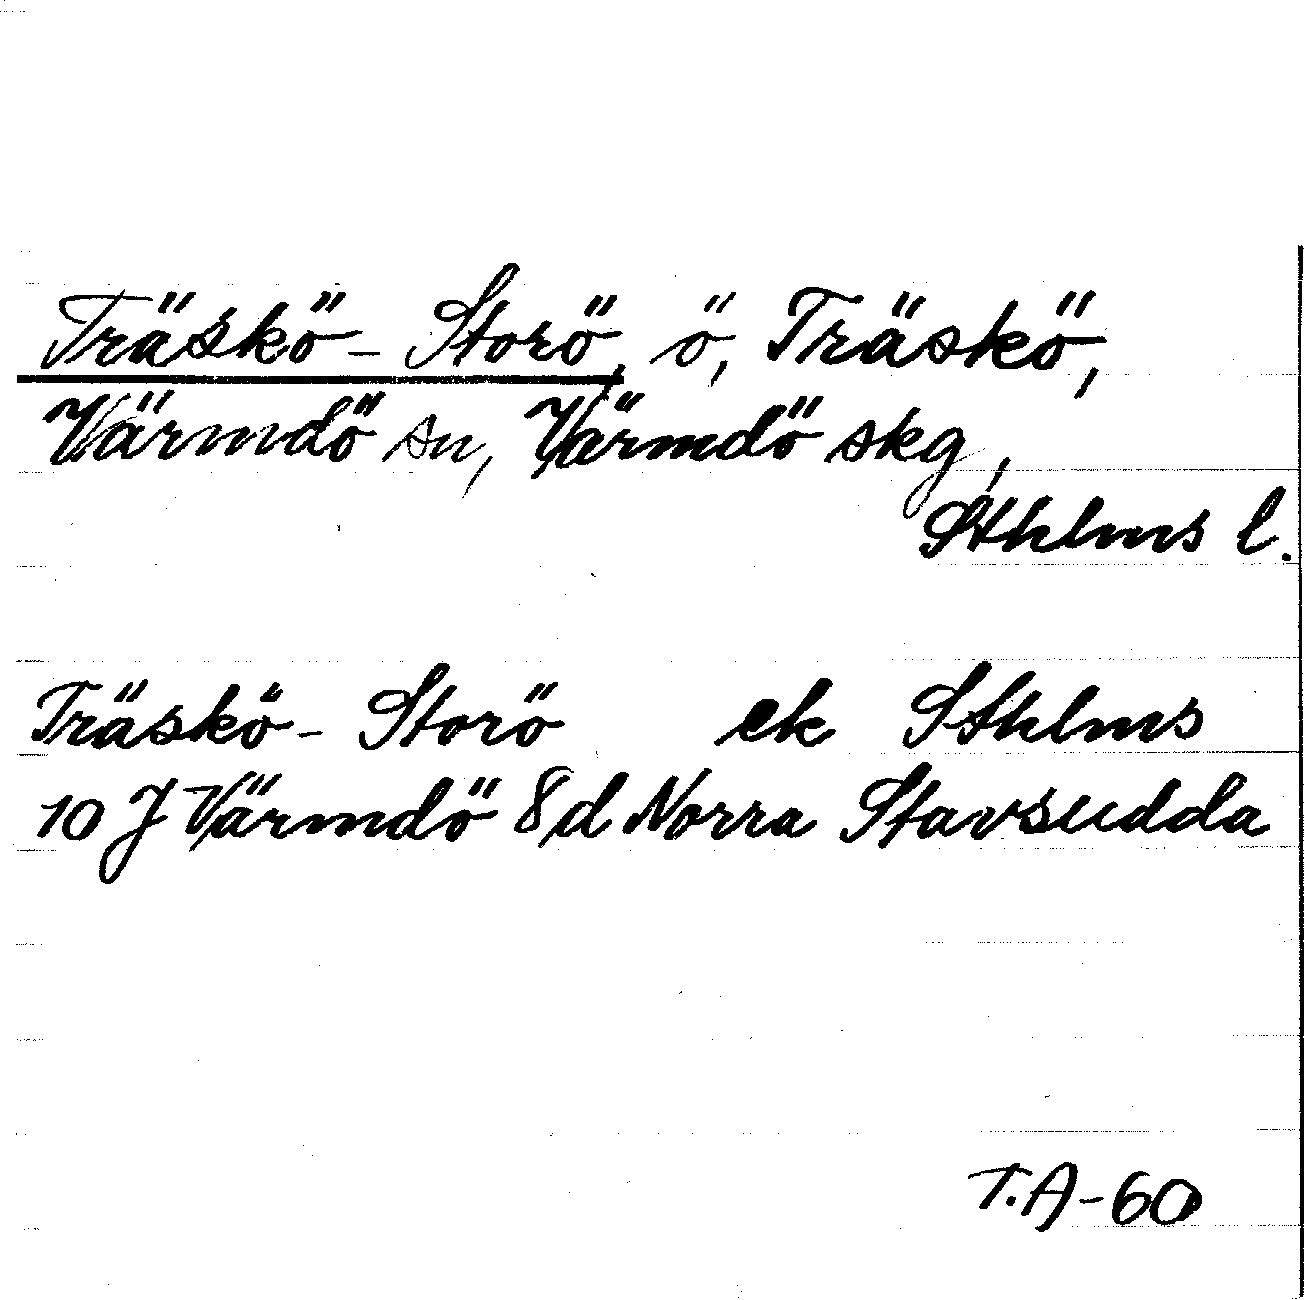 Träskö-Storö, ö, Träskö,
Värmdö sn, Värmdö skg,
Sthlms l.
Träskö-Storö ek Sthlms
10 J Värmdö 8d Norra Stavsudda
T.A-60